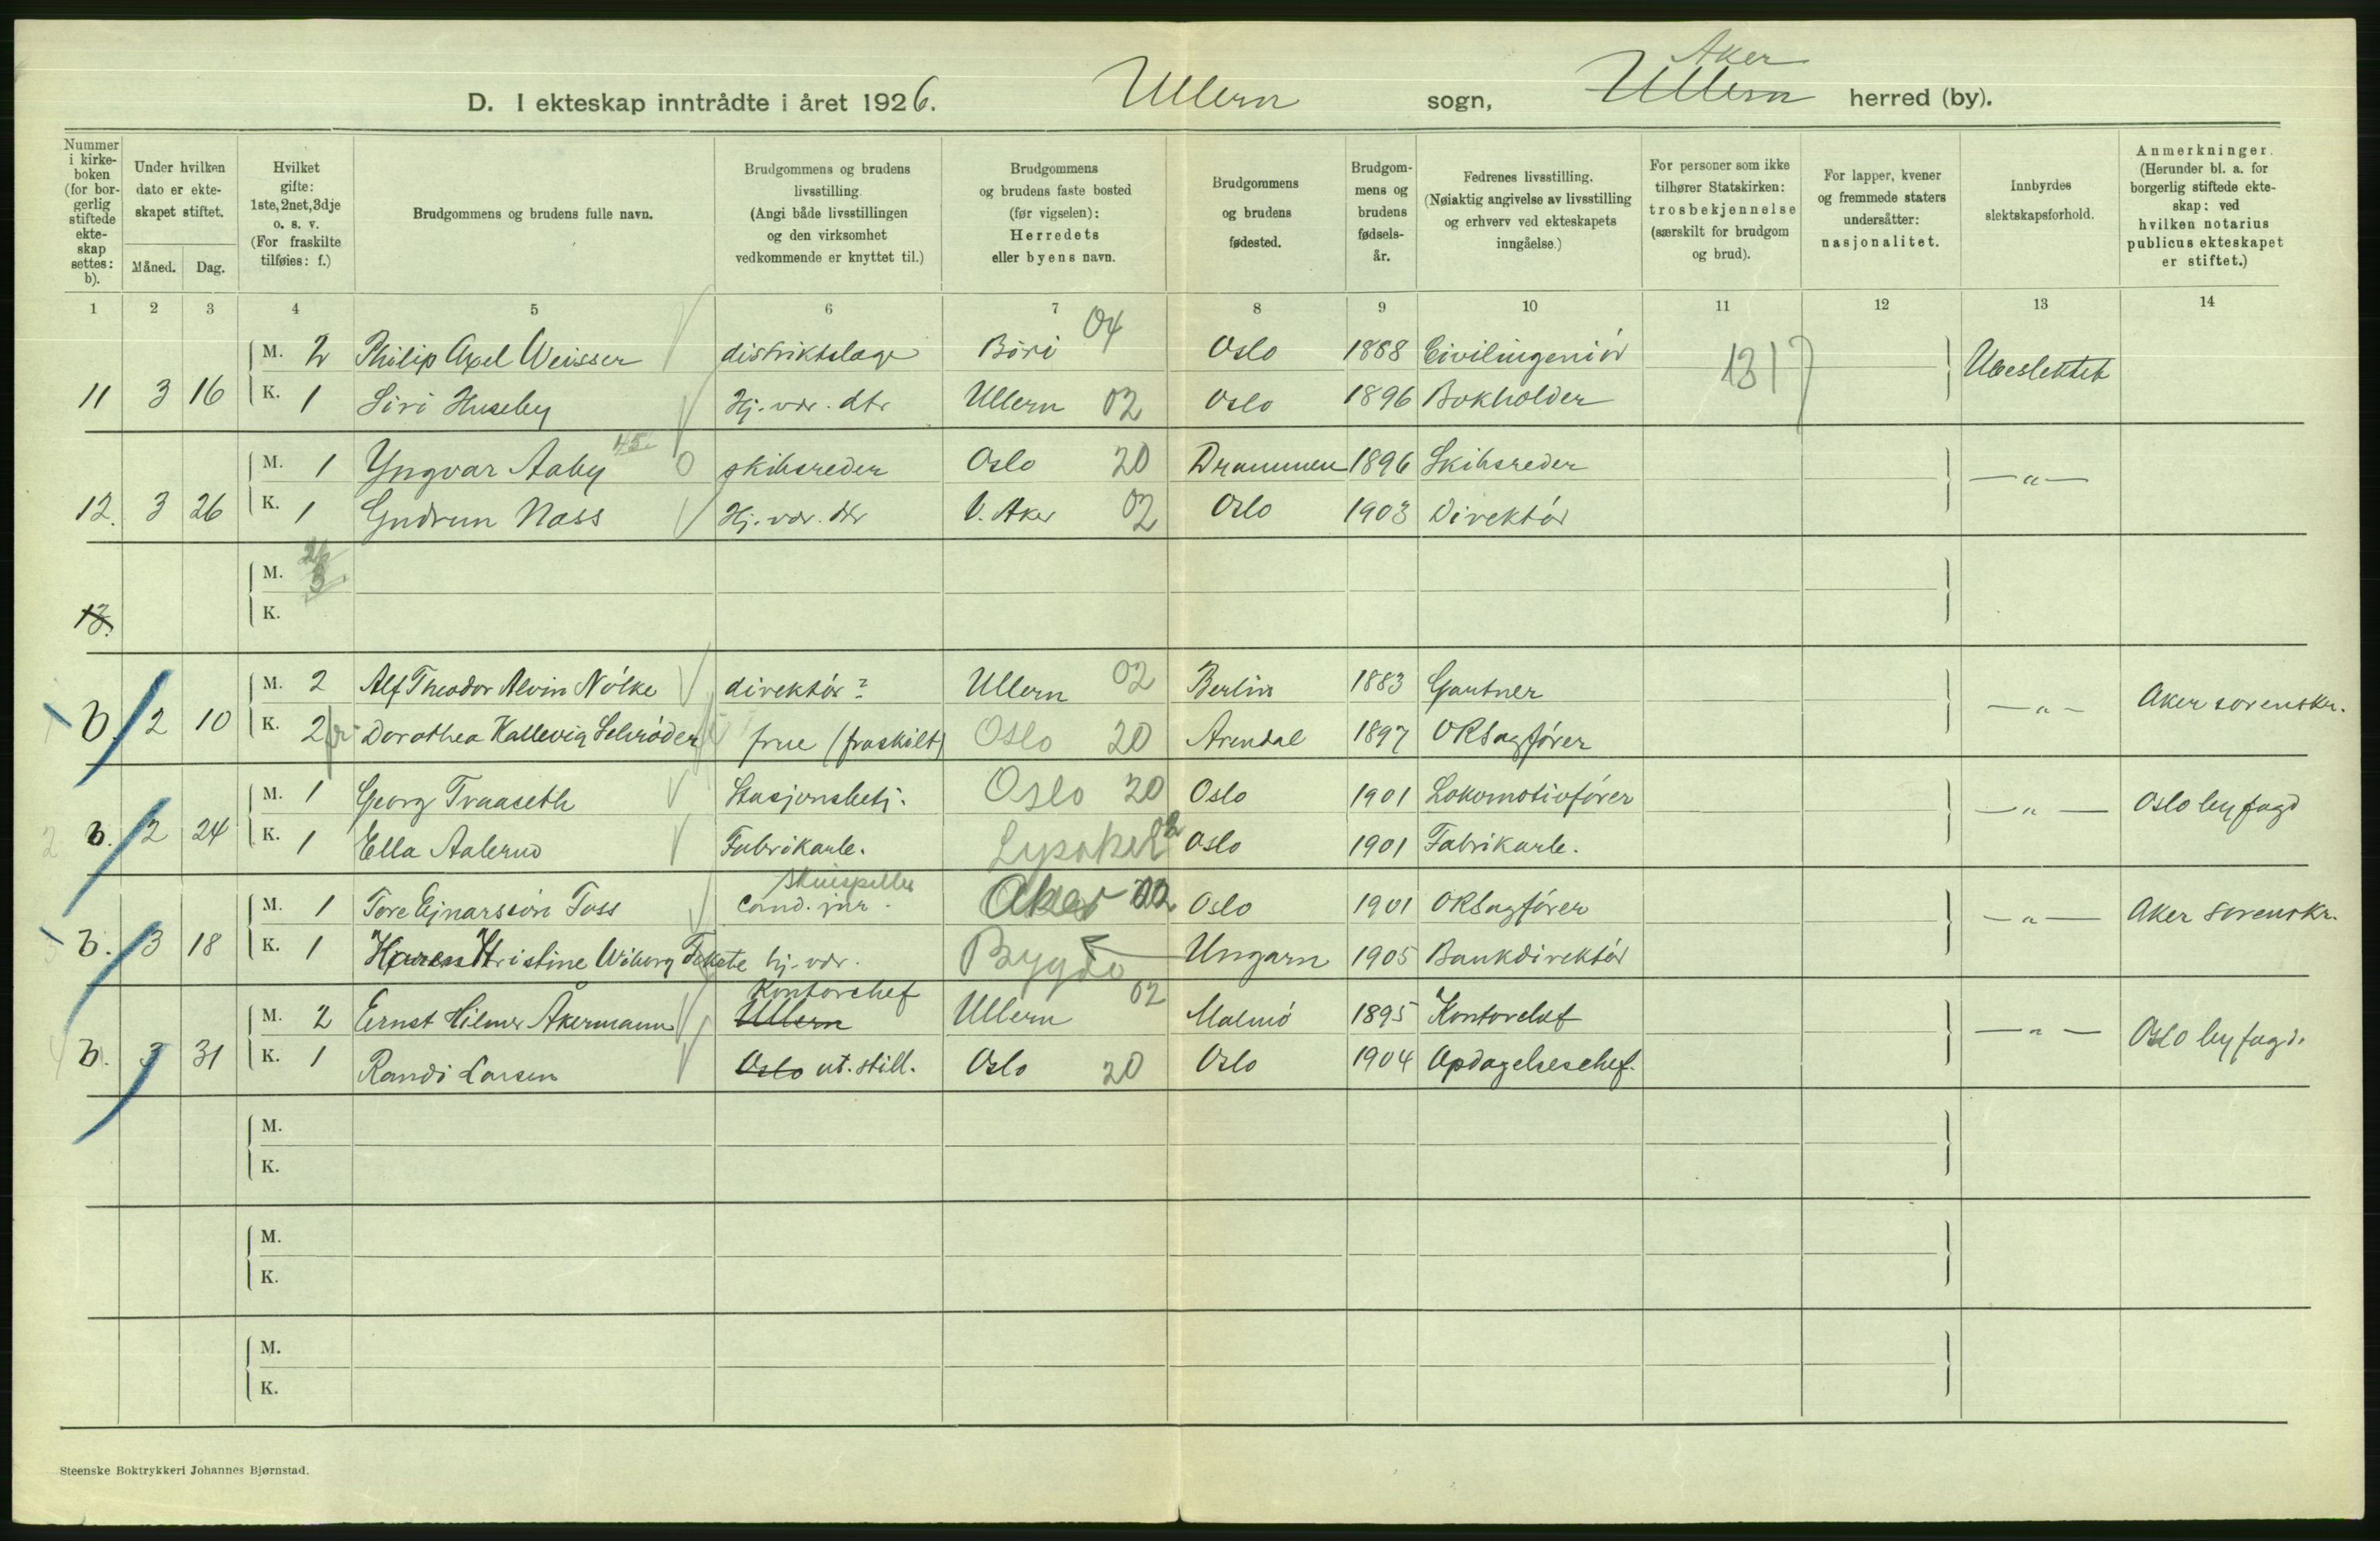 D. I ekteskap inntrådte i året 1926. Ullern sogn, Ullern Aker herred (by).
Nummer i kirkeboken (for borgerlig stiftede ekteskap settes: b).
Under hvilken dato er ekteskapet stiftet.
Måned. Dag.
Hvilket gifte: 1ste, 2net, 3dje o. s. v. (For fraskilte tilføies: f.)
Brudgommens og brudens fulle navn.
Brudgommens og brudens livsstilling. (Angi både livsstillingen og den virksomhet vedkommende er knyttet til.)
Brudgommens og brudens faste bosted (før vigselen): Herredets eller byens navn.
Brudgommens og brudens fødested.
Brudgommens og brudens fødselsår.
Fedrenes livsstilling. (Nøiaktig angivelse av livsstilling og erhverv ved ekteskapets inngåelse.)
For personer som ikke tilhører Statskirken: trosbekjennelse (særskilt for brudgom og brud).
For lapper, kvener og fremmede staters undersåtter: nasjonalitet.
Innbyrdes slektskapsforhold.
Anmerkninger. (Herunder bl. a. for borgerlig stiftede ekteskap: ved hvilken notarius publicus ekteskapet er stiftet.)
1 2 3 4 5 6 7 8 9 10 11 12 13 14
M. 2 Philip Axel Weisser distriktslæge Biri 04 Oslo 1888 Civilingeniór
11 3 16 K. 1 Siri Huseby Hj. vær. dtr Ullern 02 Oslo 1896 Bokholder 1317 Ubeslektet
M. 1 Yngvar Aaby 45 0 skibsreder Oslo 20 Drammen 1896 Skibsreder
12. 3 26 K. 1 Gudrun Næss Hj. vær. dtr V. Aker 02 Oslo 1903 Direktór — „ —
M.
13. K.
M. 2 Alf Theodor Alvin Nólke direktór? Ullern 02 Berlin 1883 Gartner
1 b. 2 10 K. 2 Dorothea Kallevig Schróder frue (fraskilt) Oslo 20 Arendal 1897 ORSagfórer — „ — Aker sorenskr.
M. 1 Georg Traaseth Stasjonsbetj. Oslo 20 Oslo 1901 Lokomotivfórer
2 b. 2 24 K. 1 Ella Aalerud Fabrikarb. Lysaker 02 Oslo 1901 Fabrikarb. — „ — Oslo byfogd
M. 1 Tore Ejnarssón Foss Skuespiller cand. jur. Aker 02 Oslo 1901 ORSagfórer
3 b. 3 18 K. 1 Karen Kristine Wiborg Fekete hj. vær. Bygdó Ungarn 1905 Bankdirektór — „ — Aker sorenskr.
M. 2 Ernst Hilmer Åkermann Ullern Kontorchef Ullern 02 Malmó 1895 Kontorchef
4 b. 3 31 K. 1 Randi Larsen Oslo ut. still. Oslo 20 Oslo 1904 Opdagelseschef. — „ — Oslo byfogd.
M.
K.
M.
K.
M.
K.
Steenske Boktrykkeri Johannes Bjørnstad.